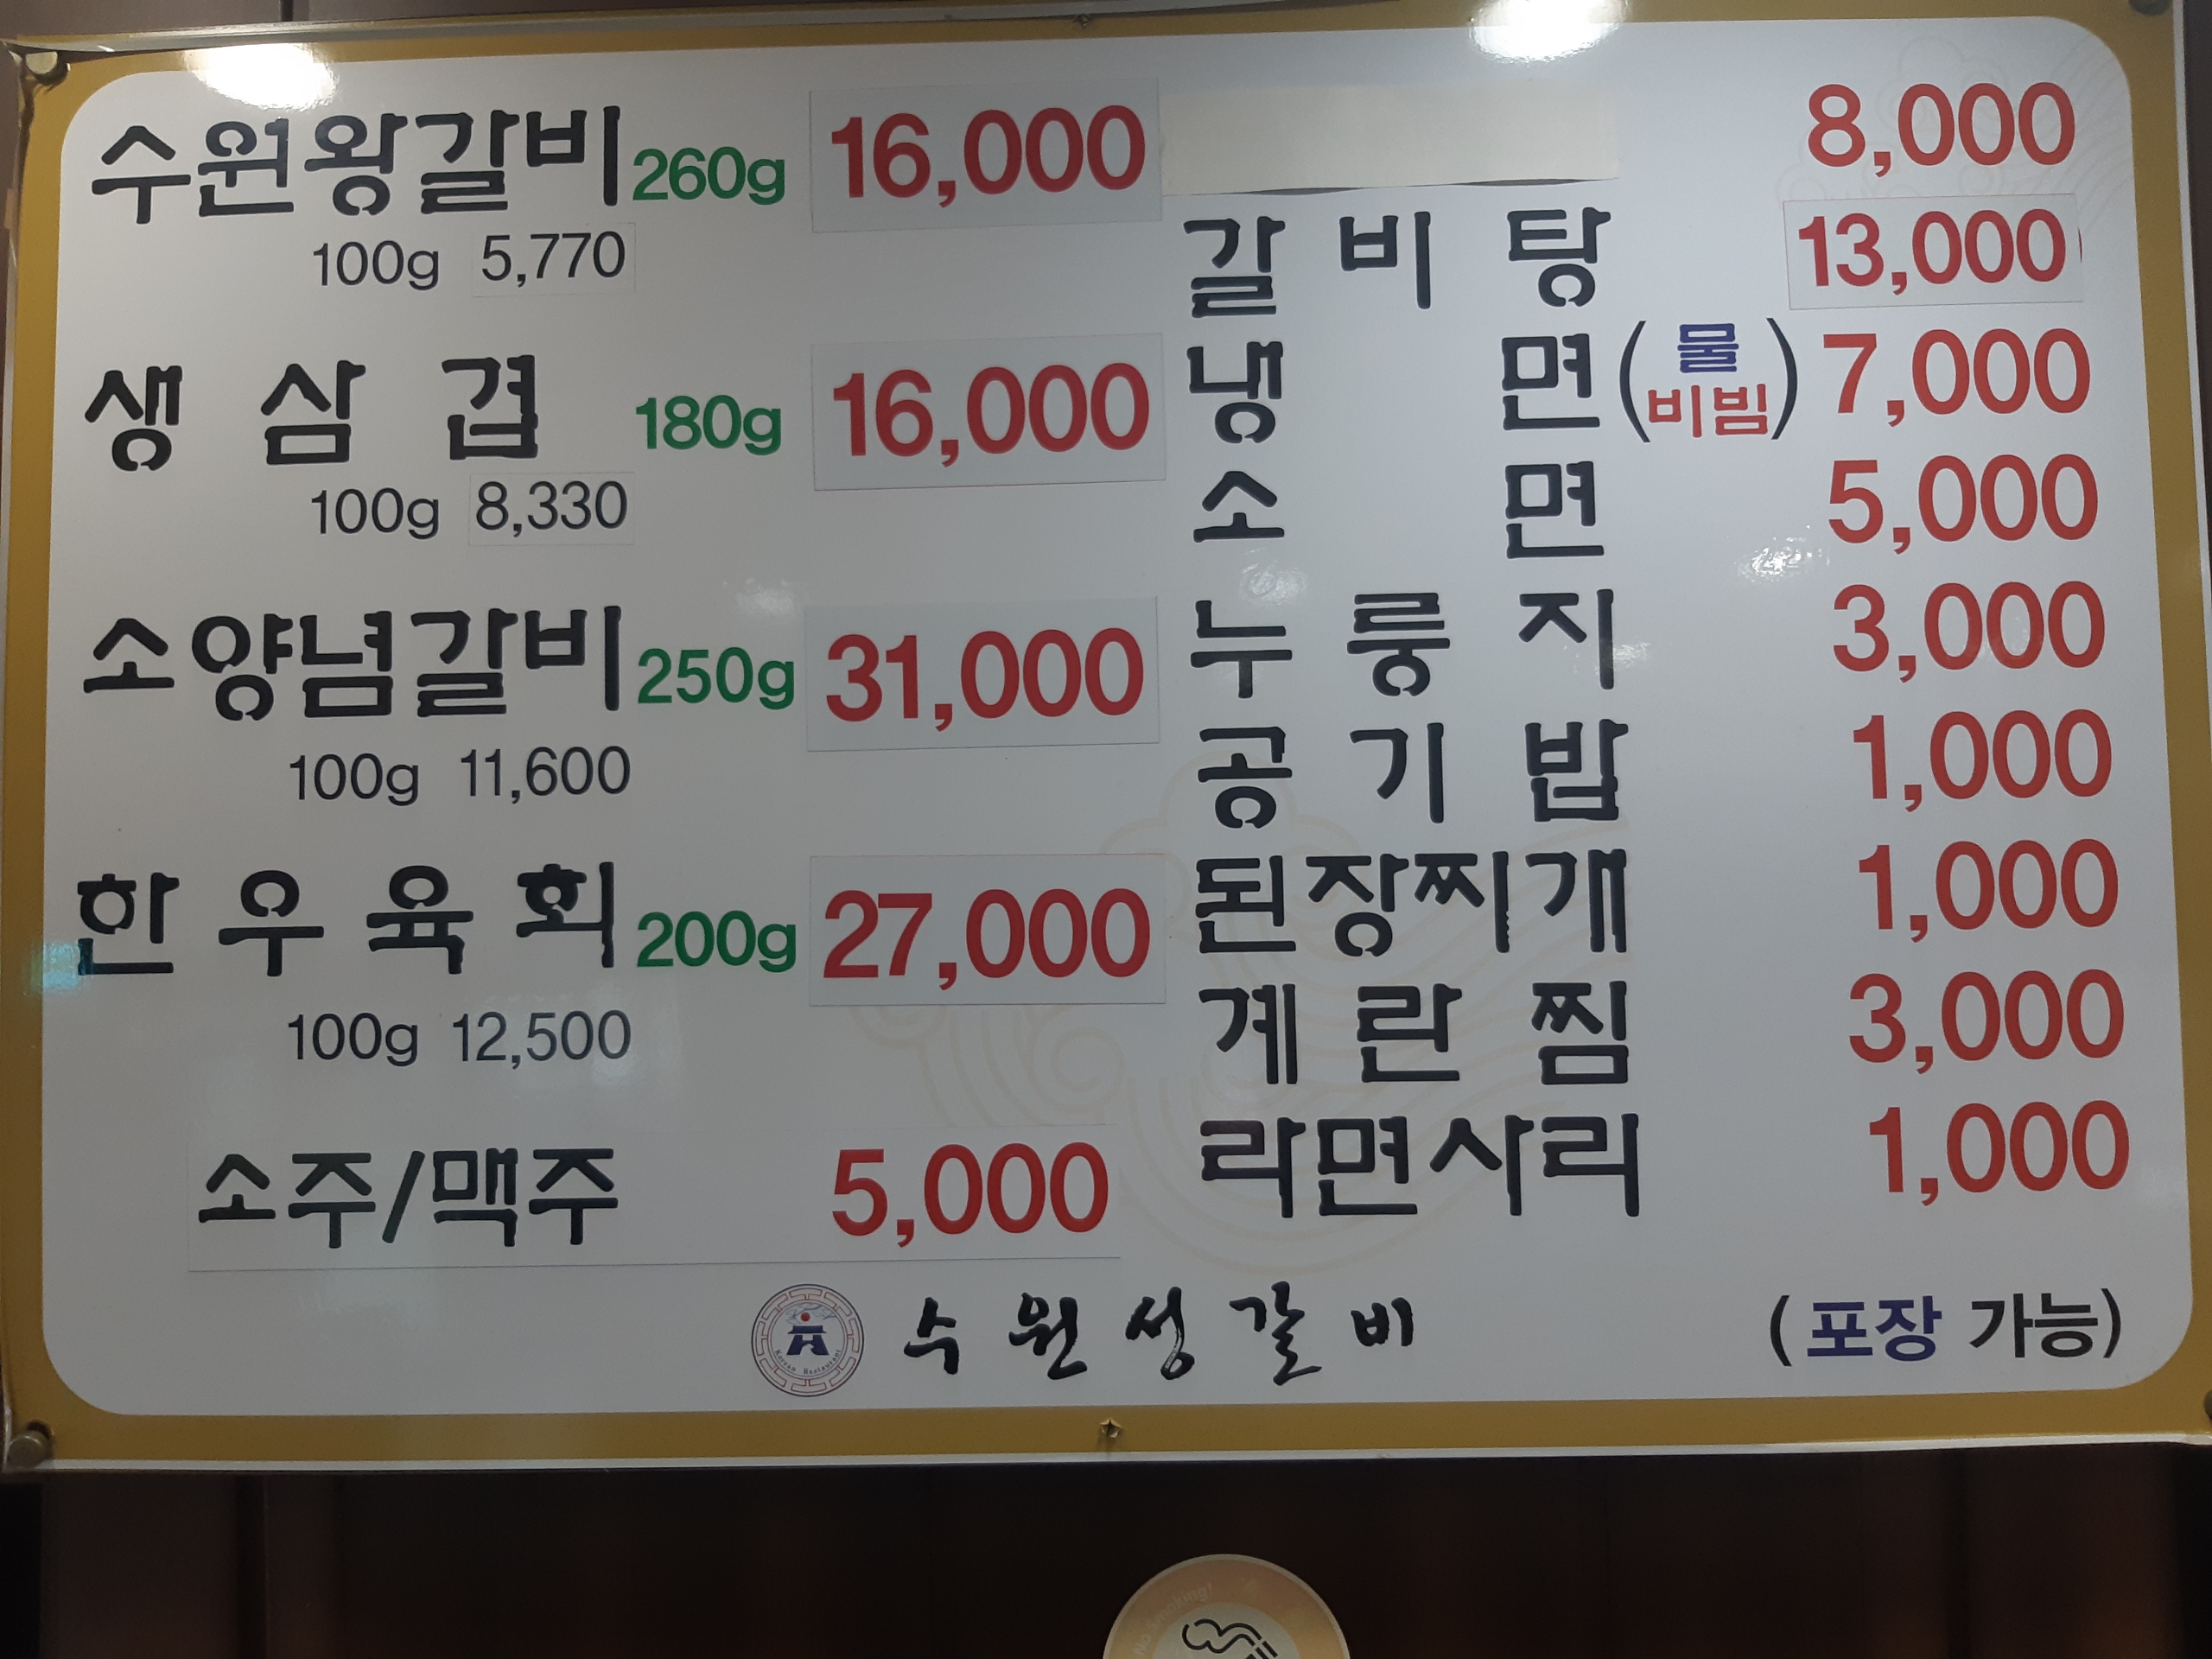 수원왕갈비 260g 16,000
100g 5,770
생삼겹 180g 16,000
100g 8,330
소양념갈비 250g 31,000
100g 11,600
한우육회 200g 27,000
100g 12,500
소주/맥주 5,000
8,000
갈비탕 13,000
냉면(물 비빔) 7,000
소면 5,000
누룽지 3,000
공기밥 1,000
된장찌개 1,000
계란찜 3,000
라면사리 1,000
Korean Restaurant
수원성갈비
(포장 가능)
No smoking!